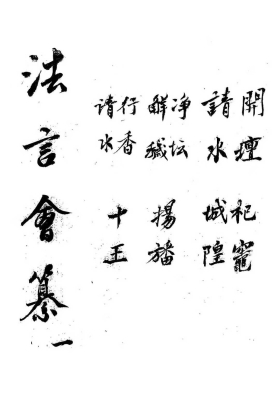 開壇 祀竈
請水 城隍
净坛
觧穢
揚旛
行香
請水
十王
法言會纂 一